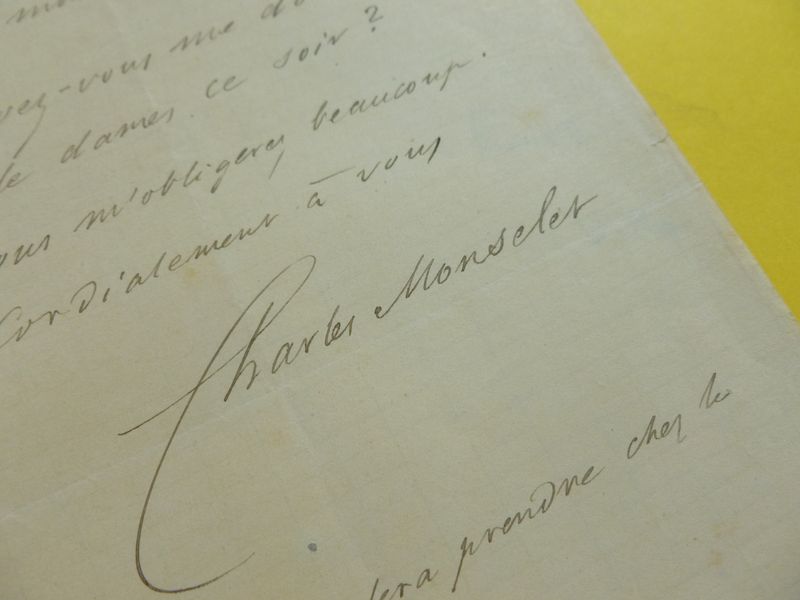 -vous me
de dames ce soir ?
m'obligerez beaucoup.
Cordialement à vous
Charles Monselet
prendre chez le